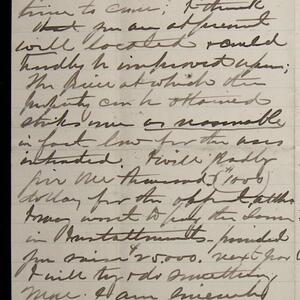 time to come; I think
that you are at present
well located & could
hardly be improved upon;
The price at which the
property can be obtained
strikes me as reasonable
in fact low for the uses
intended. I will gladly
give One thousand ($1000)
dollars for the object, altho
I may want to pay the same
in Installments. provided
you raise $25000. next year
I will try & do something
more. I am sincerely